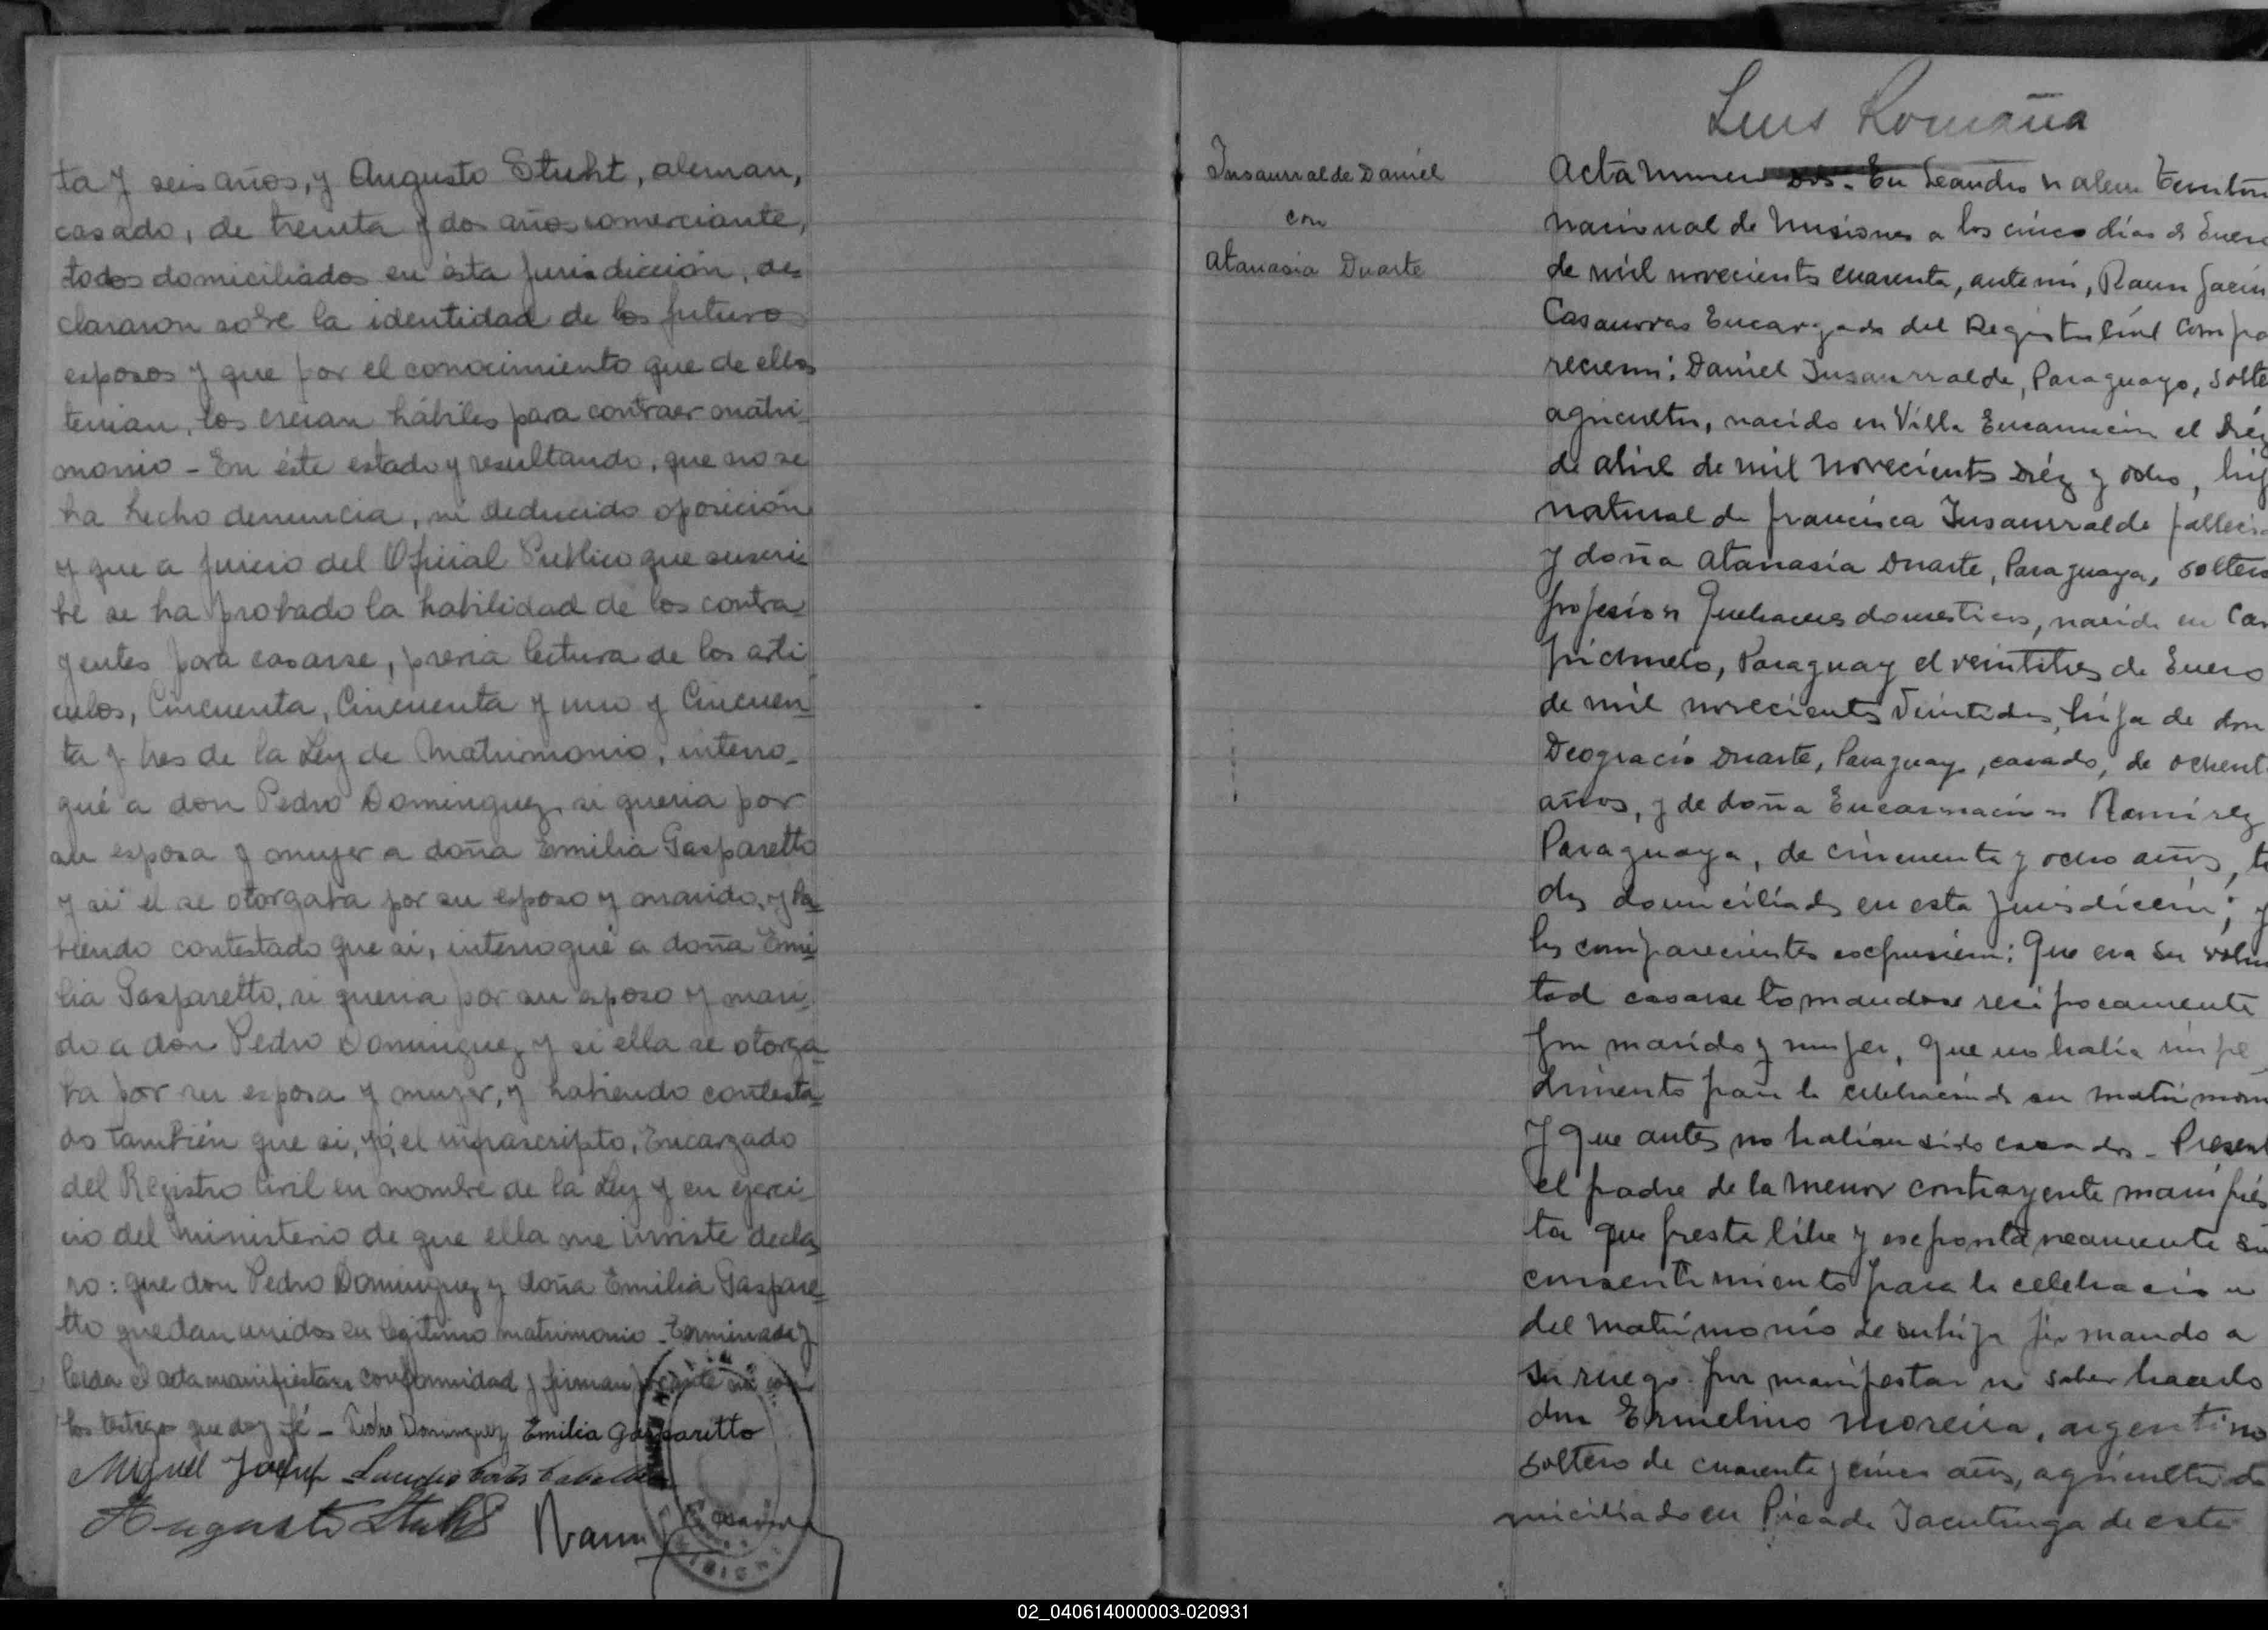 ta y seis años, y Augusto Stuht, aleman,
casado, de treinta y dos años comerciante,
todos domiciliados en ésta jurisdicción, de
clararon sobre la identidad de los futuros
esposos y que por el conocimiento que de ellos
tenian, los creian hábiles para contraer matri
monio - En éste estado y resultando, que no se
ha hecho denuncia, ni deducido oposición
y que a juicio del Oficial Publico que suscri
be se ha probado la habilidad de los contra
yentes para casarse, previa lectura de los arti
culos, Cincuenta, Cincuenta y uno y Cincuen
ta y tres de la Ley de Matrimonio, interro_
gué a don Pedro Dominguez si queria por
su esposa y mujer a doña Emilia Gasparetto
y si el se otorgaba por su esposo y marido, y ha
biendo contestado que si, interrogué a doña Emi
lia Gasparetto, si queria por su esposo y mari
do a don Pedro Dominguez y si ella se otorga
ba por su esposa y mujer, y habiendo contesta
do también que si, yó, el infrascripto, Encargado
del Registro Civil en nombre de la Ley y en ejerci
cio del Ministerio de que ella me inviste decla
ro: que don Pedro Dominguez y doña Emilia Gaspare
tto quedan unidos en legitimo matrimonio - Terminada y
leida el acta manifiestan conformidad y firman por ante mi con
los testigos que doy fé - Pedro Dominguez Emilia Gasparitto
Miguel Josef
Augusto Stuht
Insaurralde Daniel
con
Atanasia Duarte
Luis Romaña
Acta Numero Dos - En Leandro N Alem Territori
nacional de Misiones a los cinco dias de Enero
de mil novecientos cuarenta, ante mi, Raun Jacin
Casaurras Encargado del Registro Civil Compa
recieron: Daniel Insaurralde, Paraguayo, solte
agricultor, nacido en Villa Encarnación el diéz
de abril de mil novecientos diéz y ocho, hij
natural de Francisca Insaurralde falleci
y doña Atanasia Duarte, Paraguaya, soltera
profesión Quehaceres domesticos, nacida en Ca
pichuelo, Paraguay el veintitres de Enero
de mil novecientos Veintidos, hija de don
Deogracio Duarte, Paraguayo, casado, de ochent
años, y de doña Encarnación Ramirez
Paraguaya, de cincuenta y ocho años, to
dos domiciliados en esta jurisdicción; y
los comparecientes expusieron: Que era su volun
tad casarse tomandose reciprocamente
por marido y mujer, que no habia impe
dimento para la celebración de su matrimon
y que antes no habian sido casados - Present
el padre de la menor contrayente manifiés
ta que presta libre y espontaneamente su
consentimiento para la celebracion
del matrimonio de su hija firmando a
su ruego por manifestar no saber hacerlo
don Ermelino Moreira, argentino
soltero de cuarenta y cinco años, agricultor do
miciliado en Picada Tacutinga de este
02_040614000003-020931